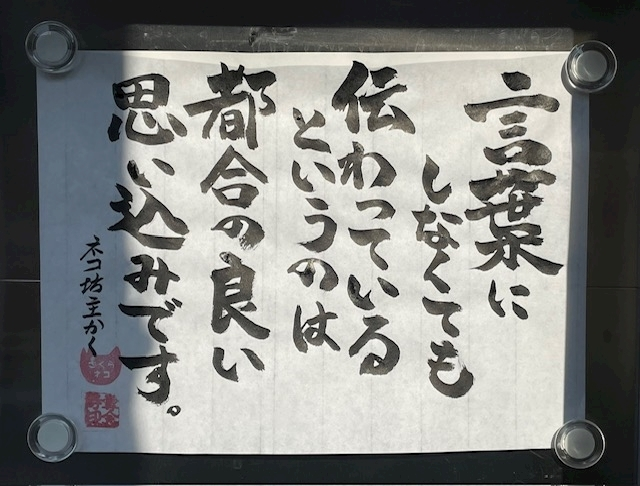 言葉に
しなくても
伝わっている
というのは
都合の良い
思い込みです。
ネコ坊主かく